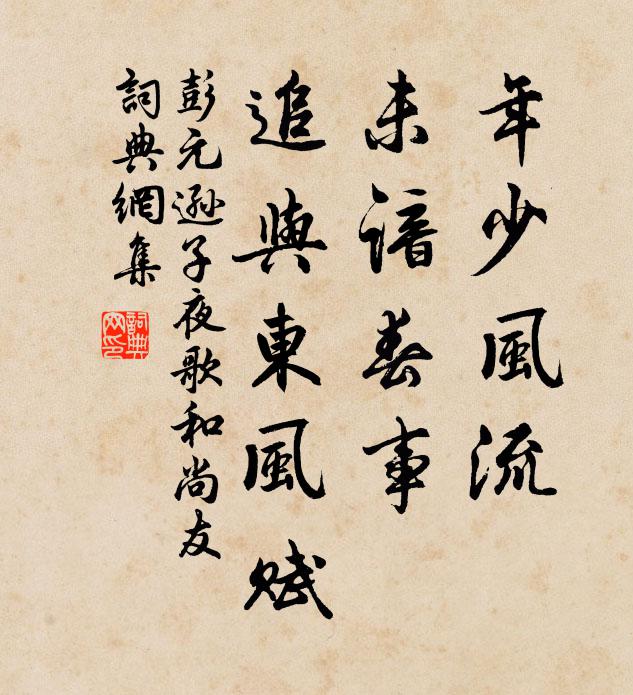 年少風流
未諳春事
追與東風賦
彭元遜子夜歌和尚友
詞典網集
詞典
网印